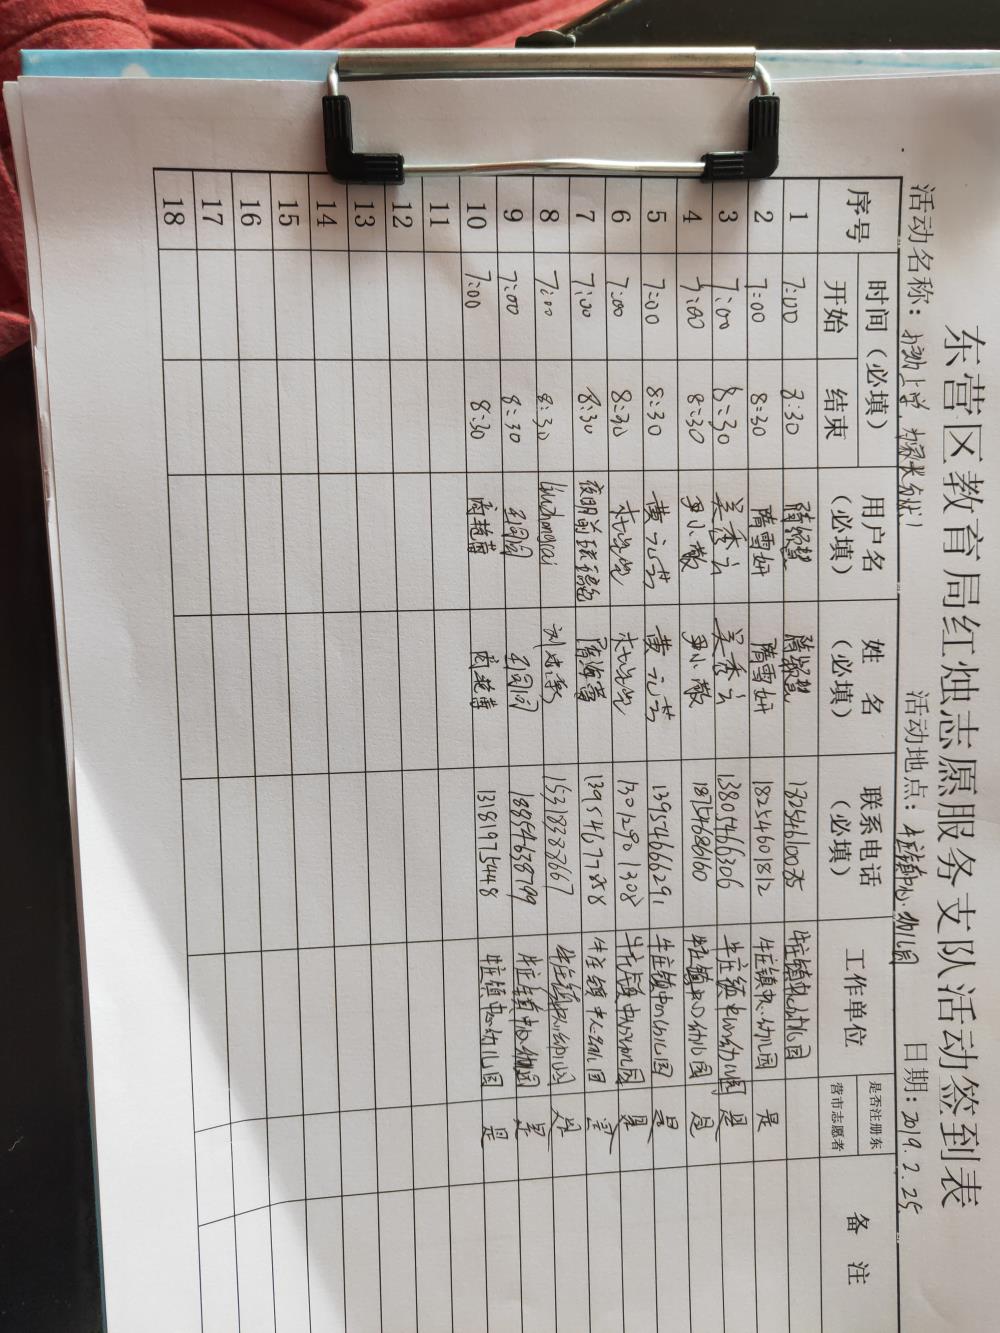 东营区教育局红烛志愿服务支队活动签到表
活动名称： 活动地点：牛庄镇中心幼儿园 日期：2019.2.25
序号 时间（必填） 用户名（必填） 姓名（必填） 联系电话（必填） 工作单位 是否注册东营市志愿者 备注
开始 结束
1 7:00 8:30 牛庄镇中心幼儿园
2 7:00 8:30 隋雪妍 隋雪妍 18254601812 牛庄镇中心幼儿园 是
3 7:00 8:30 吴秀云 吴秀云 13805466306 牛庄镇中心幼儿园 是
4 7:00 8:30 尹小敏 尹小敏 18754686160 牛庄镇中心幼儿园 是
5 7:00 8:30 黄元芸 黄元芸 13954666291 牛庄镇中心幼儿园 是
6 7:00 8:30 13012901308 牛庄镇中心幼儿园 是
7 7:00 8:30 13954677288 牛庄镇中心幼儿园 是
8 7:00 8:30 15318383667 牛庄镇中心幼儿园 是
9 7:00 8:30 王闪闪 王闪闪 18854638799 牛庄镇中心幼儿园 是
10 7:00 8:30 13181975448 牛庄镇中心幼儿园 是
11
12
13
14
15
16
17
18